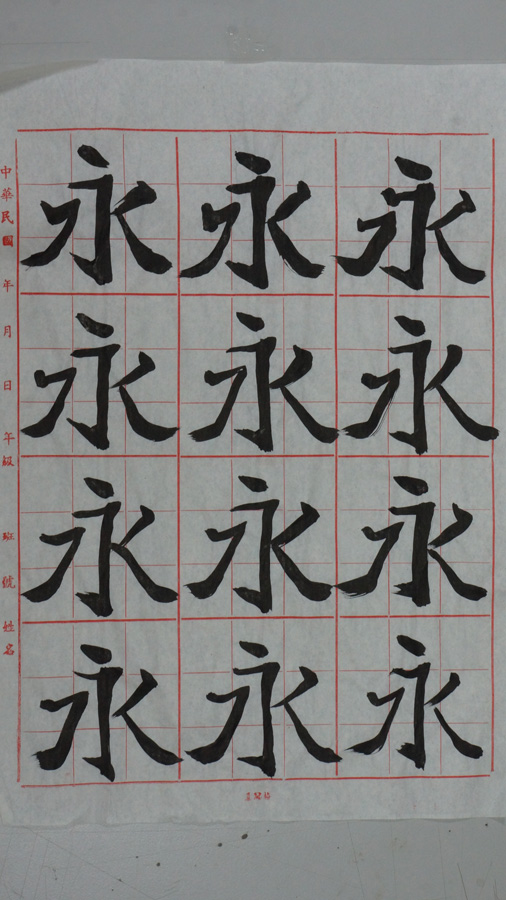 永永永
永永永
永永永
永永永
中華民國 年 月 日 年級 班 號 姓名